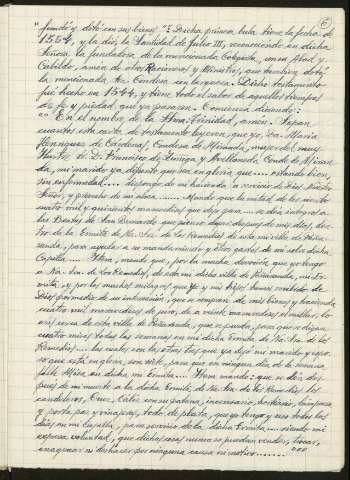 "fundó y dotó con sus bienes". Dicha primera bula tiene la fecha de
1554, y la dió, la Santidad de Julio III, reconociendo en dicha
Señora la fundadora de la mencionada Colegiata, con su Abad y
Cabildo, amén de otros Racioneros y Ministros, que también dotó
la mencionada Sra. Condesa con largueza. Dicho testamento
fué hecho en 1544, y tiene todo el sabor de aquellos tiempos
de fe y piedad, que ya pasaron. Comienza diciendo:
"En el nombre de la Stma. Trinidad, amén. Sepan
cuantos esta carta de testamento leyeren, que yo, Da. María
Henriquez de Cárdenas, Condesa de Miranda, mujer del muy
Ilustre Sr. D. Francisco de Zuñiga y Avellaneda Conde de Miran
da, mi marido ya difunto que sea en gloria que .... estando bien,
sin enfermedad .... dispongo de mi hacienda a servicio de Dios Nuestro
Señor, y provecho de mi alma ....... Mando que la mitad de los
cuatro mil y quinientos maravedises que dejo para .... se den
las Beatas de San Bernardo que pienso hacer después de mis días, den
tro de la Ermita de Na. Sra. de los Remedios de esta mi villa de Peña
randa, para ayudar a su mandamiento y otros gastos de mi sola dicha
Capilla .... Item, mando que, por la mucha devoción que yo tengo
a Na. Sra. de los Remedios, de esta mi dicha villa de Peñaranda, su Er
mita y por los muchos milagros que Yo y mis hijos hemos recibido de
Dios por medio de su intercesión, que se compren de mis bienes y hacienda
cuatro mil maravedises de juro, de a veinte maravedises el millar,
cerca de esta villa de Peñaranda, que se pueda, para que se digan
cuatro misas todas las semanas en mi dicha Ermita de Na. Sra. de los
Remedios .... las cuales con las otras tres que ya dejó mi marido y repo
so que está en gloria, son siete, para que en ningún día de la semana
falte Misa en dicha mi Ermita .... Item mando: que se den des
pues de mi muerte a la dicha Ermita de Na. Sra. de los Remedios los
candeleros, Cruz, Cáliz con su patena, incensario, hostiario, lámpara
y portapaz y vinajeras, todo de plata, que yo tengo y uso todos los
días en mi Capilla, para servicio de la dicha Ermita .... siendo mi
expresa voluntad, que dichas cosas nunca se puedan vender, trocar,
enagenar ni deshacer por ninguna causa ni motivo ........"